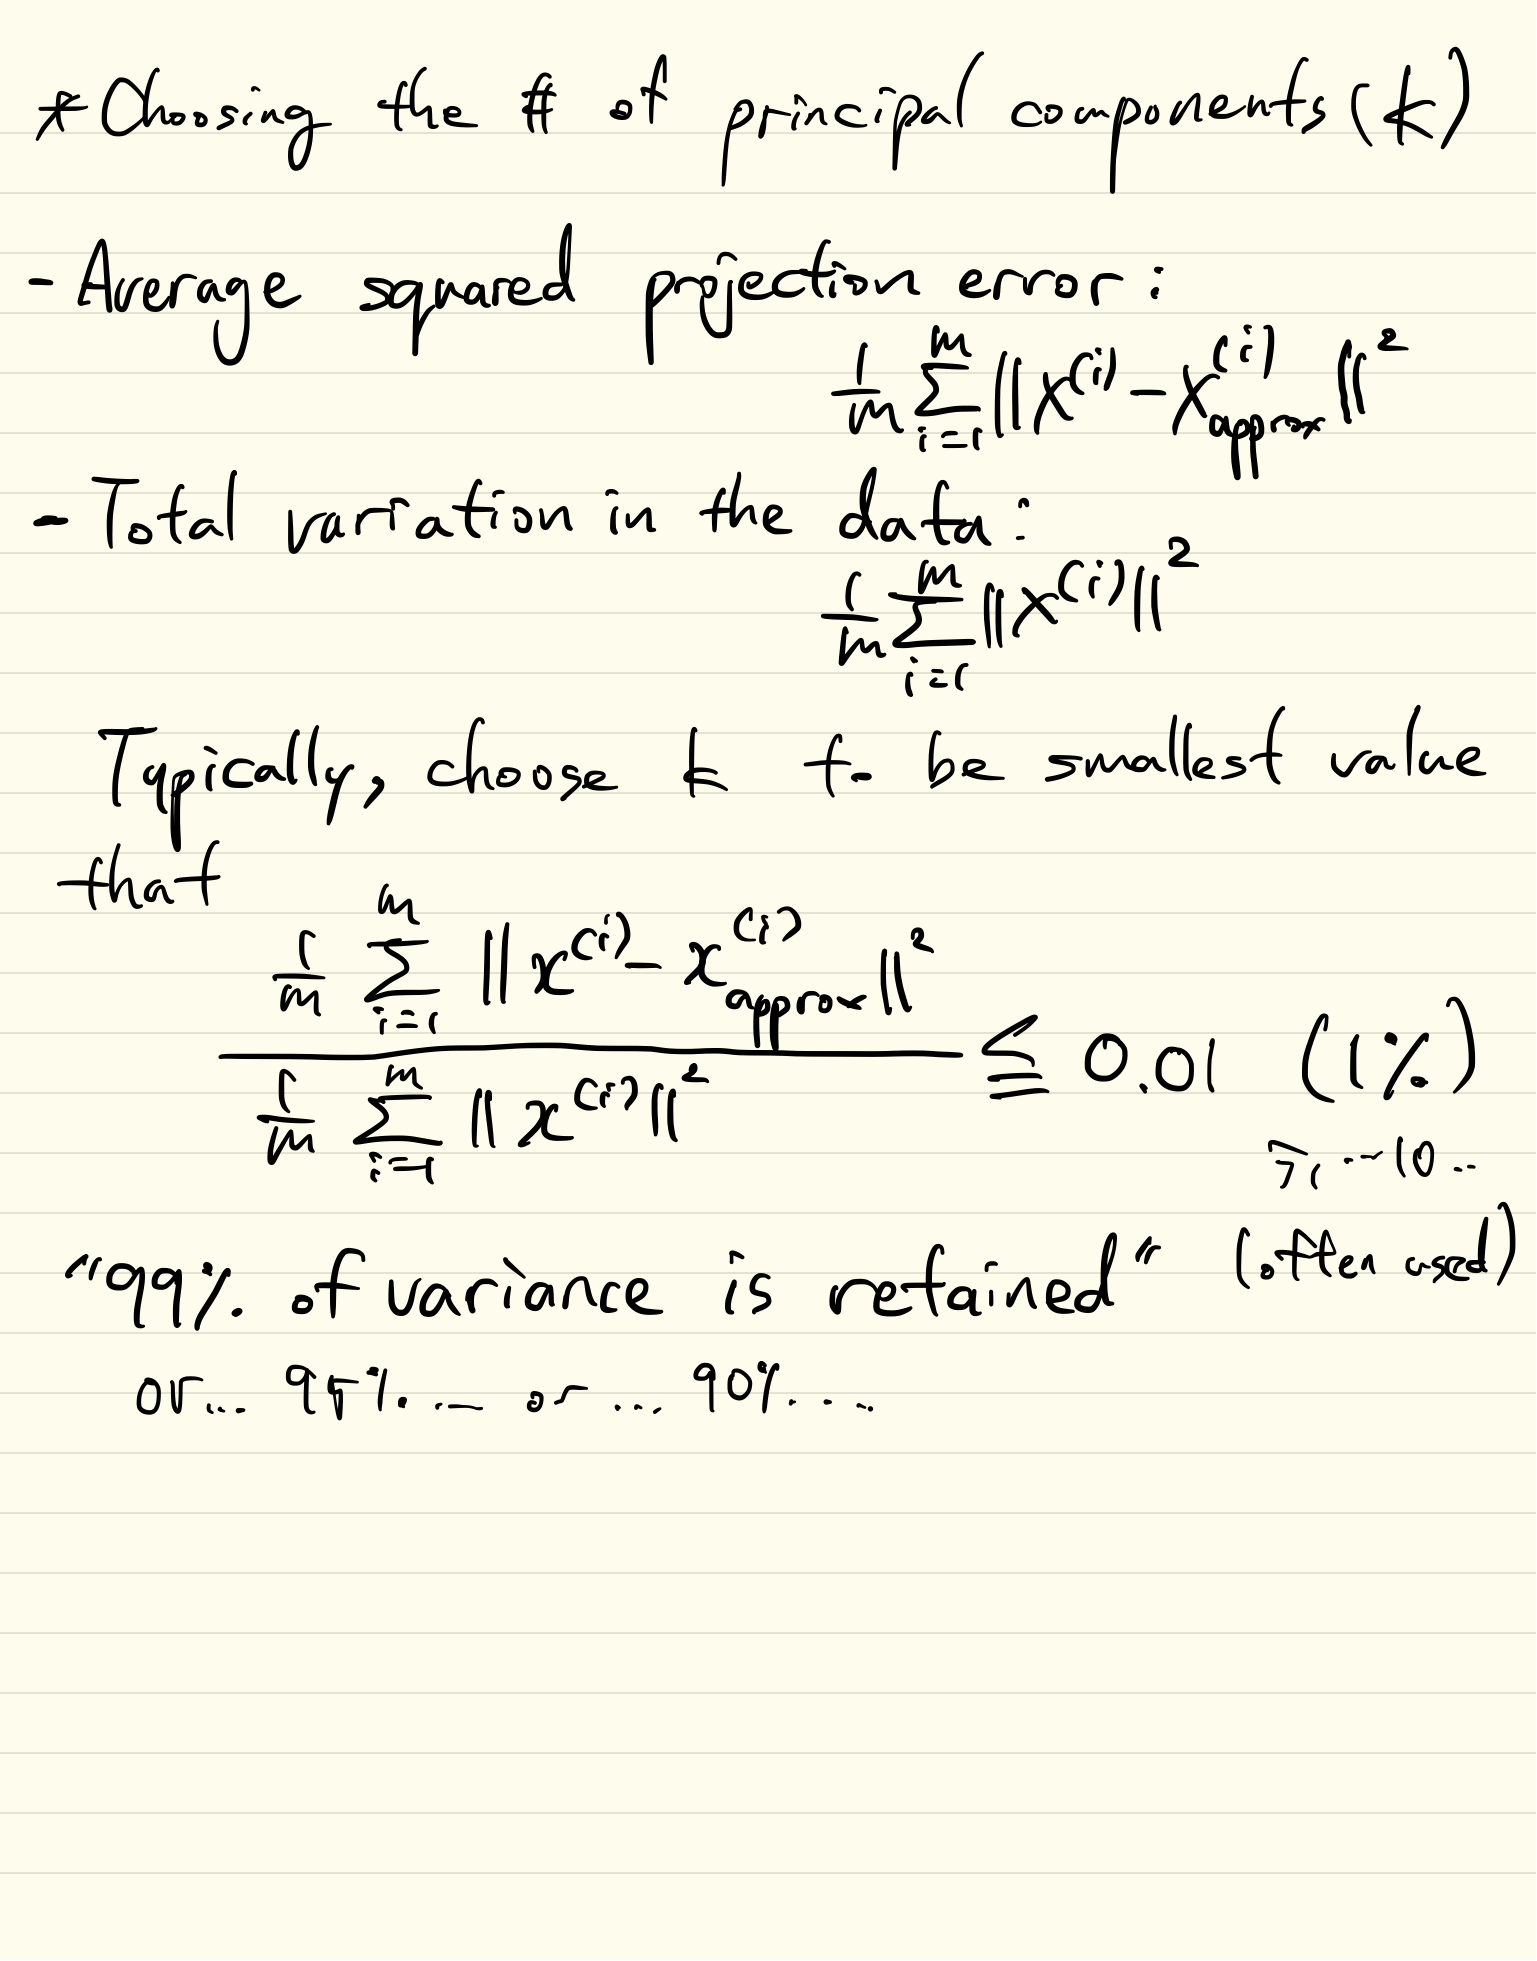 * Choosing the # of principal components (k)
- Average squared projection error:
1/m Σ_{i=1}^{m} ||x^(i) - x_approx^(i)||^2
- Total variation in the data:
1/m Σ_{i=1}^{m} ||x^(i)||^2
Typically, choose k to be smallest value
that
1/m Σ_{i=1}^{m} ||x^(i) - x_approx^(i)||^2
1/m Σ_{i=1}^{m} ||x^(i)||^2
≦ 0.01 (1%)
10..
"99% of variance is retained" (often used)
or... 95%... or ... 90%....